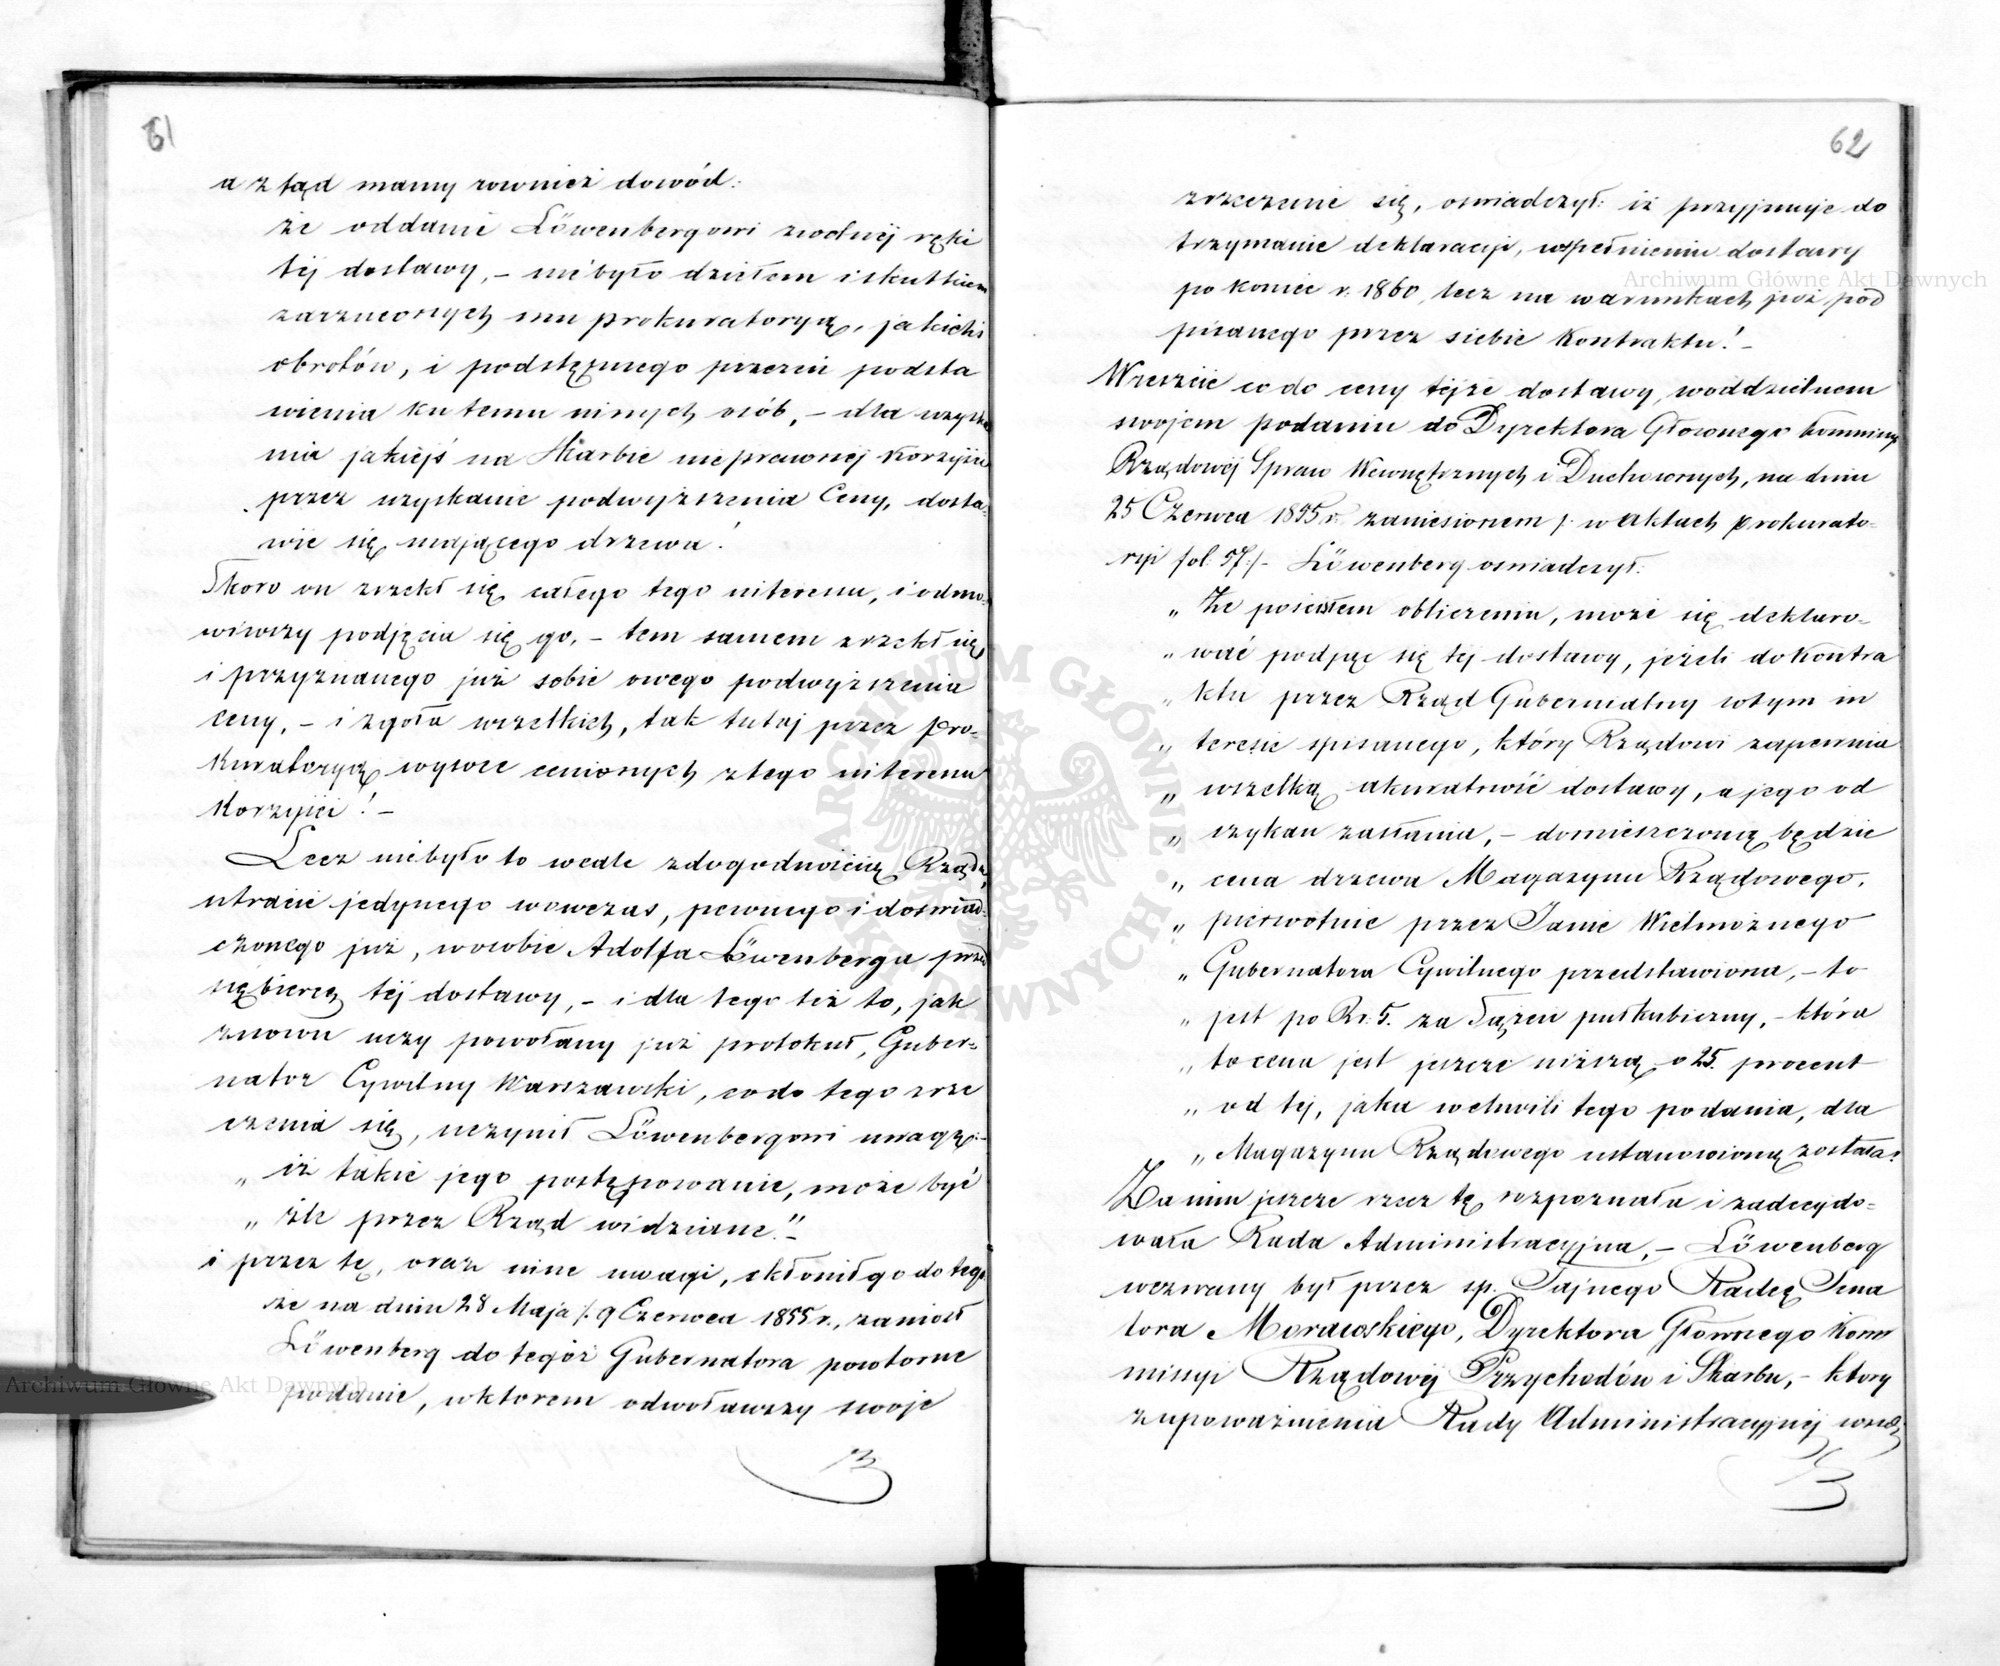 61
a ztąd mamy rownież dowód:
że oddanie Löwenbergowi zwolnéj ręki
téj dostawy, – niebyło dziełem i skutkiem
zarzuconych mu prokuratoryą, jakichś
obrotów, i podstępnego przezeń podsta
wienia ku temu innych osób, – dla uzyska
nia jakiejś na Skarbie nieprawnej korzyści
przez uzyskanie podwyższenia Ceny, dosta-
wić się mającego drzewa!
Skoro on zrzekł się całego tego interesu, i odmó-
wiwszy podjęcia się go, – tem samem zrzekł się
i przyznanego już sobie owego podwyższenia
ceny, – i zgoła wszelkich, tak tutaj przez Pro-
kuratoryą wysoce cenionych z tego interesu
Korzyści! –
Lecz niebyło to wcale zdogodnością Rządu,
utracić jedynego wowczas, pewnego i doświad-
czonego już, w osobie Adolfa Löwenberga przed
siębiercę téj dostawy, – i dla tego też to, jak
znowu uczy powołany już protokuł, Guber-
nator Cywilny Warszawski, co do tego zrze
czenia się, uczynił Löwenbergowi uwagę: –
„ iż takie jego postępowanie, może być
„ źle przez Rząd widziane." –
i przez tę, oraz inne uwagi, skłonił go do tego
że na dniu 28 Maja /. 9 Czerwca 1855 r., zaniósł
Löwenberg do tegóż Gubernatora powtorne
podanie, wktorem odwoławszy swoje
62
zrzeczenie się, oswiadczył: iż przyjmuje do
trzymanie deklaracyi, wspełnieniu dostawy
po koniec r. 1860, lecz na warunkach już pod
pisanego przez siebie Kontraktu! –
Wreszcie co do ceny tejże dostawy, woddzielnem
swojem podaniu do Dyrektora Głownego Kommissyi
Rządowéj Spraw Wewnętrznych i Duchownych, na dniu
25 Czerwca 1855 r. zaniesionem /: w aktach prokurato-
ryi fol: 57:/ – Löwenberg oswiadczył:
„ Że pościsłem obliczeniu, może się deklaro-
„ wać podjąć się téj dostawy, jeżeli do Kontra
„ ktu przez Rząd Gubernialny wtym in
„ teresie spisanego, który Rządowi zapewnia
„ wszelką akuratność dostawy, a jego od
„ szykan zasłania, – domieszczoną będzie
„ cena drzewa Magazynu Rządowego,
„ pierwotnie przez Jaśnie Wielmożnego
„ Gubernatora Cywilnego przedstawiona, – to
„ jest po Rs. 5. za Sążeń pułkubiczny, – która
„ to cena jest jeszcze niższą o 25. procent
„ od tej, jaka wchwili tego podania, dla
„ Magazynu Rządowego ustanowioną została:
Zanim jeszcze rzecz tę rozpoznała i zadecydo-
wała Rada Administracyjna, – Löwenberg
wezwany był przez śp. Tajnego Radcę Sena
tora Morawskiego, Dyrektora Głownego Kom
missyi Rządowéj Przychodów i Skarbu, – ktory
zupoważnienia Rady Administracyjnéj
Archiwum Główne Akt Dawnych
Archiwum Główne Akt Dawnych
ARCHIWUM GŁÓWNE AKT DAWNYCH